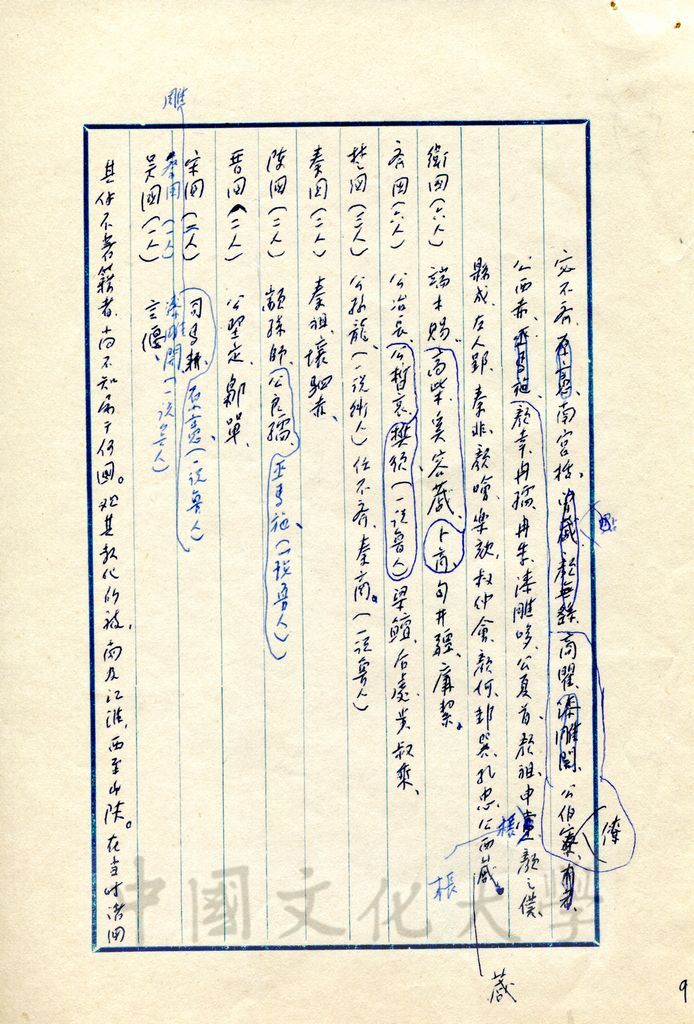 宓不齊、原憲、南宮括、曾蒧、顏無繇、商瞿、漆雕開、公伯寮、有若、
公西赤、巫馬施、顏幸、冉孺、冉季、漆雕哆、公夏首、顏祖、申棖、顏之僕、
縣成、左人郢、秦非、顏噲、樂欬、叔仲會、顏何、邽巽、孔忠、公西蒧。
衛國(六人) 端木賜、高柴、奚容蒧、卜商、句井疆、廉絜。
齊國(六人) 公冶長、公皙哀、樊須、(一說魯人)梁鱣、后處、步叔乘、
楚國(三人) 公孫龍、(一說衛人)任不齊、秦商。(一說魯人)
秦國(二人) 秦祖、壤駟赤、
陳國(二人) 顓孫師、公良孺、巫馬施(一說魯人)
晉國(二人) 公堅定、鄡單、
宋國(二人) 司馬耕、原憲(一說魯人)
蔡國(一人) 漆雕開(一說魯人)
吳國(一人) 言偃、
其作不著籍者、尚不知屬于何國。 其教化所被、南及江淮、西至山陝。在當時諸國
雕
點
僚
棖
棖
蒧
9
中國文化大學